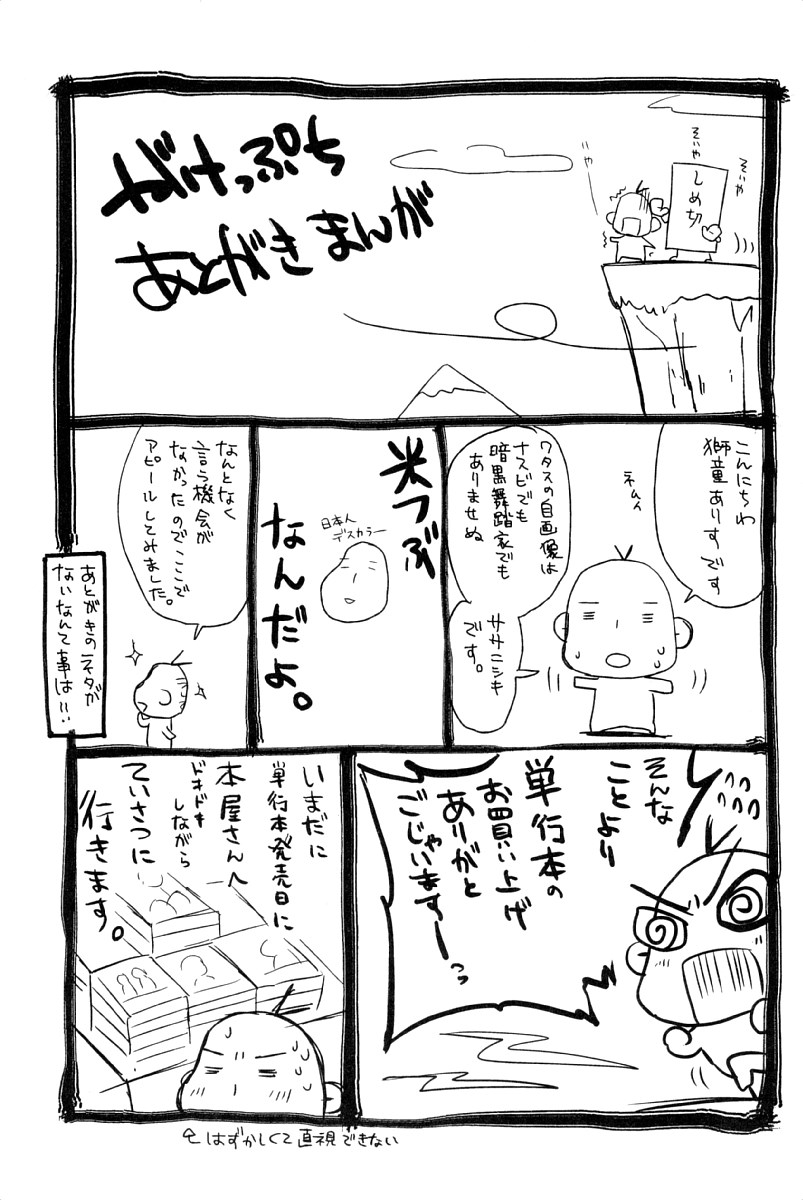 がけっぷち
あとがきまんが
そいや
そいや
いや
しめ切
こんにちわ
獅童ありすです
ネムイ
ワタスの自画像は
ナスビでも
暗黒舞踏家でも
ありませぬ
ササニシキ
です。
米つぶ
なんだよ。
日本人
デスカラー
なんとなく
言う機会が
なかったのでここで
アピールしてみました。
あとがきのネタが
ないなんて事は!!
そんな
ことより
単行本の
お買い上げ
ありがと
ごじゃ
いますーっっ
いまだに
単行本発売日に
本屋さんへ
ドキドキ
しながら
ていさつに
行きます。
はずかしくて直視できない